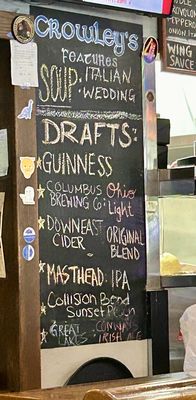 CROWLEY'S
FEATURES
SOUP: ITALIAN
WEDDING
DRAFTS:
GUINNESS
COLUMBUS Ohio
BREWING CO: Light
DOWNEAST
CIDER ORIGINAL
BLEND
MASTHEAD: IPA
Collision Bend
Sunset
GREAT CONWAYS
LAKES IRISH ALE
ONION
WING
SAUCE